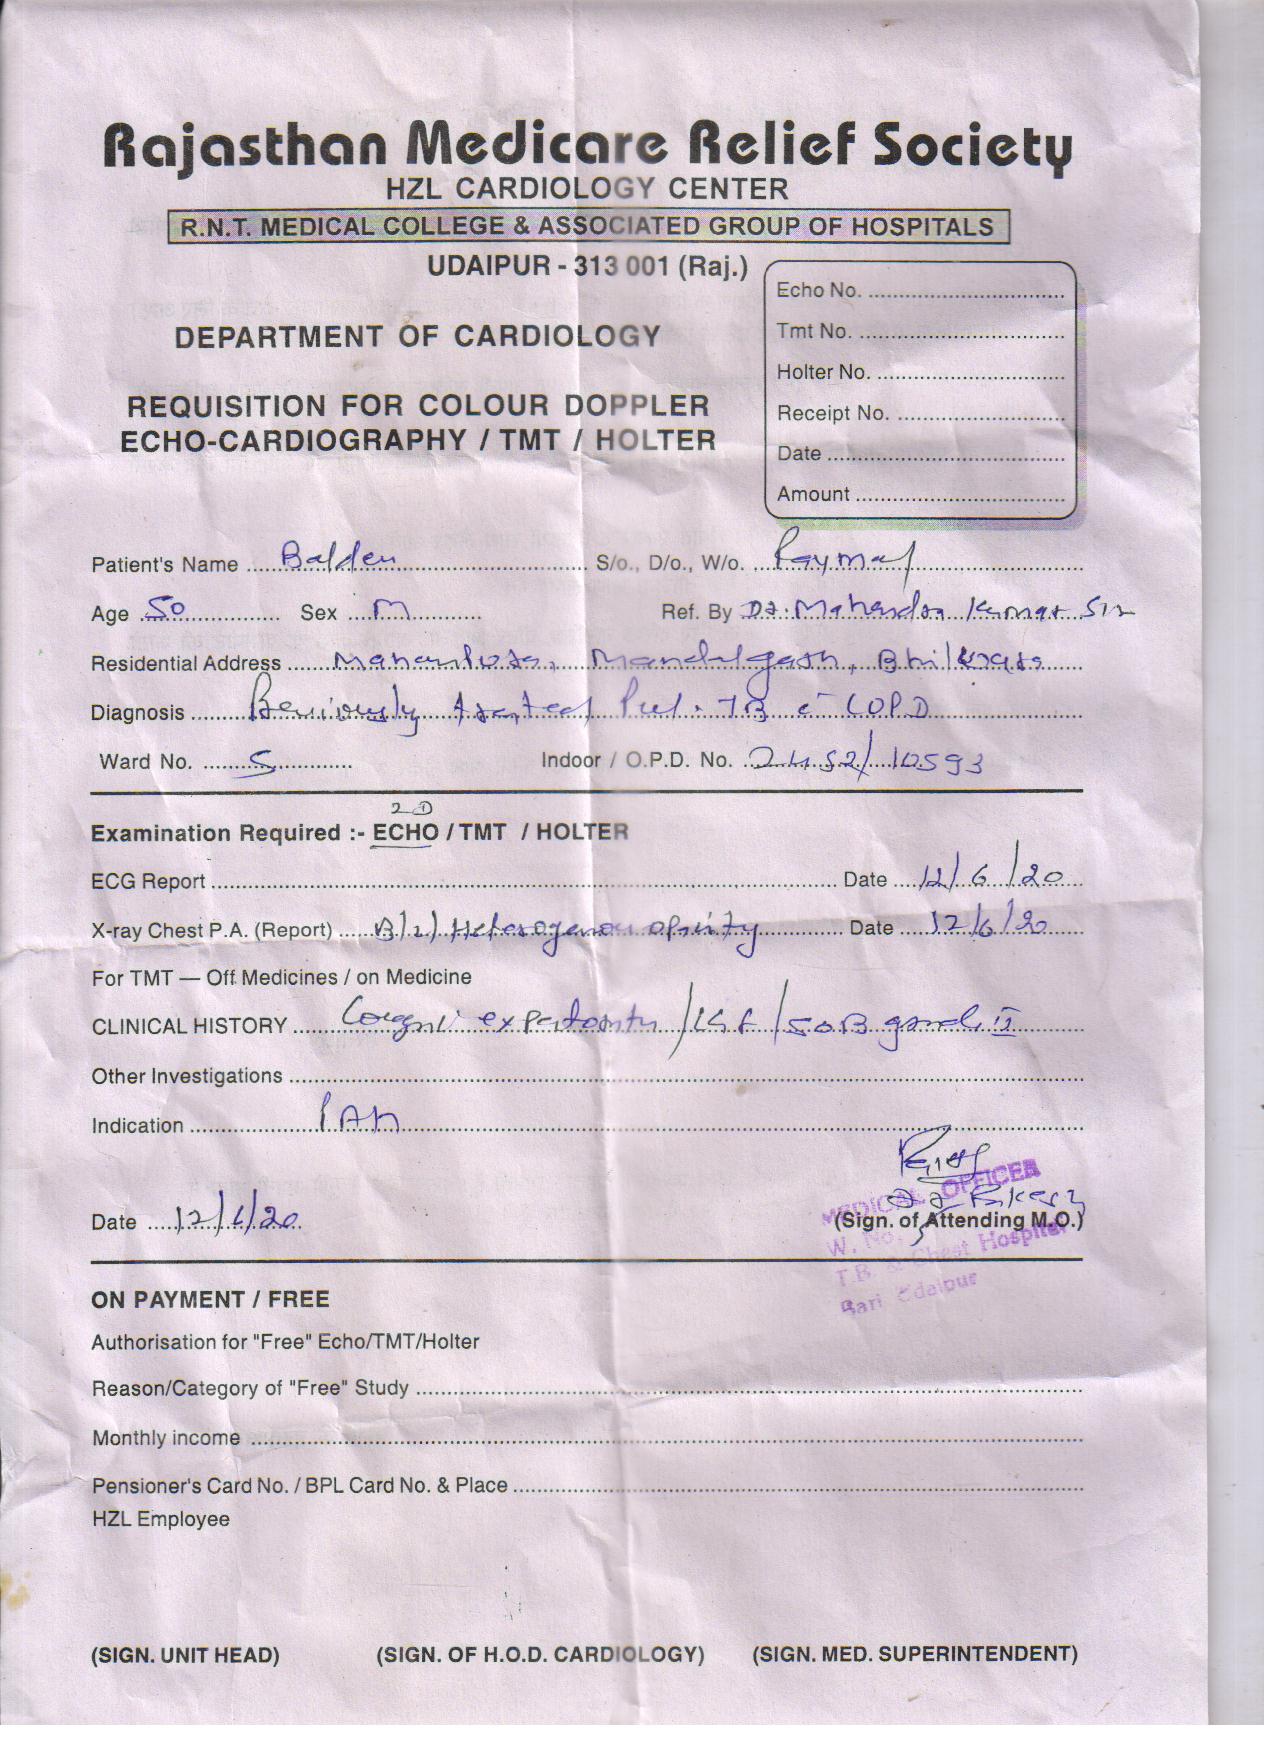 Rajasthan Medicare Relief Society
HZL CARDIOLOGY CENTER
R.N.T. MEDICAL COLLEGE & ASSOCIATED GROUP OF HOSPITALS
UDAIPUR - 313 001 (Raj.)
Echo No.
Tmt No.
Holter No.
Receipt No.
Date
Amount
DEPARTMENT OF CARDIOLOGY
REQUISITION FOR COLOUR DOPPLER
ECHO-CARDIOGRAPHY / TMT / HOLTER
Patient's Name Baldev S/o., D/o., W/o.
Age 50 Sex M Ref. By Dr. Mahendra Kumar Sir
Residential Address Mandalgarh, Bhilwara
Diagnosis Previously treated Pul. TB c̄ COPD
Ward No. 5 Indoor / O.P.D. No. 2452/10593
2D
Examination Required :- ECHO / TMT / HOLTER
ECG Report Date 12/6/20
X-ray Chest P.A. (Report) B/L Heterogenous opacity Date 12/6/20
For TMT — Off Medicines / on Medicine
CLINICAL HISTORY Cough / SOB grade II
Other Investigations
Indication PAH
Date 12/6/20
MEDICAL OFFICER
(Sign. of Attending M.O.)
W. No.
T.B. & Chest Hospital
Bari Udaipur
ON PAYMENT / FREE
Authorisation for "Free" Echo/TMT/Holter
Reason/Category of "Free" Study
Monthly income
Pensioner's Card No. / BPL Card No. & Place
HZL Employee
(SIGN. UNIT HEAD) (SIGN. OF H.O.D. CARDIOLOGY) (SIGN. MED. SUPERINTENDENT)